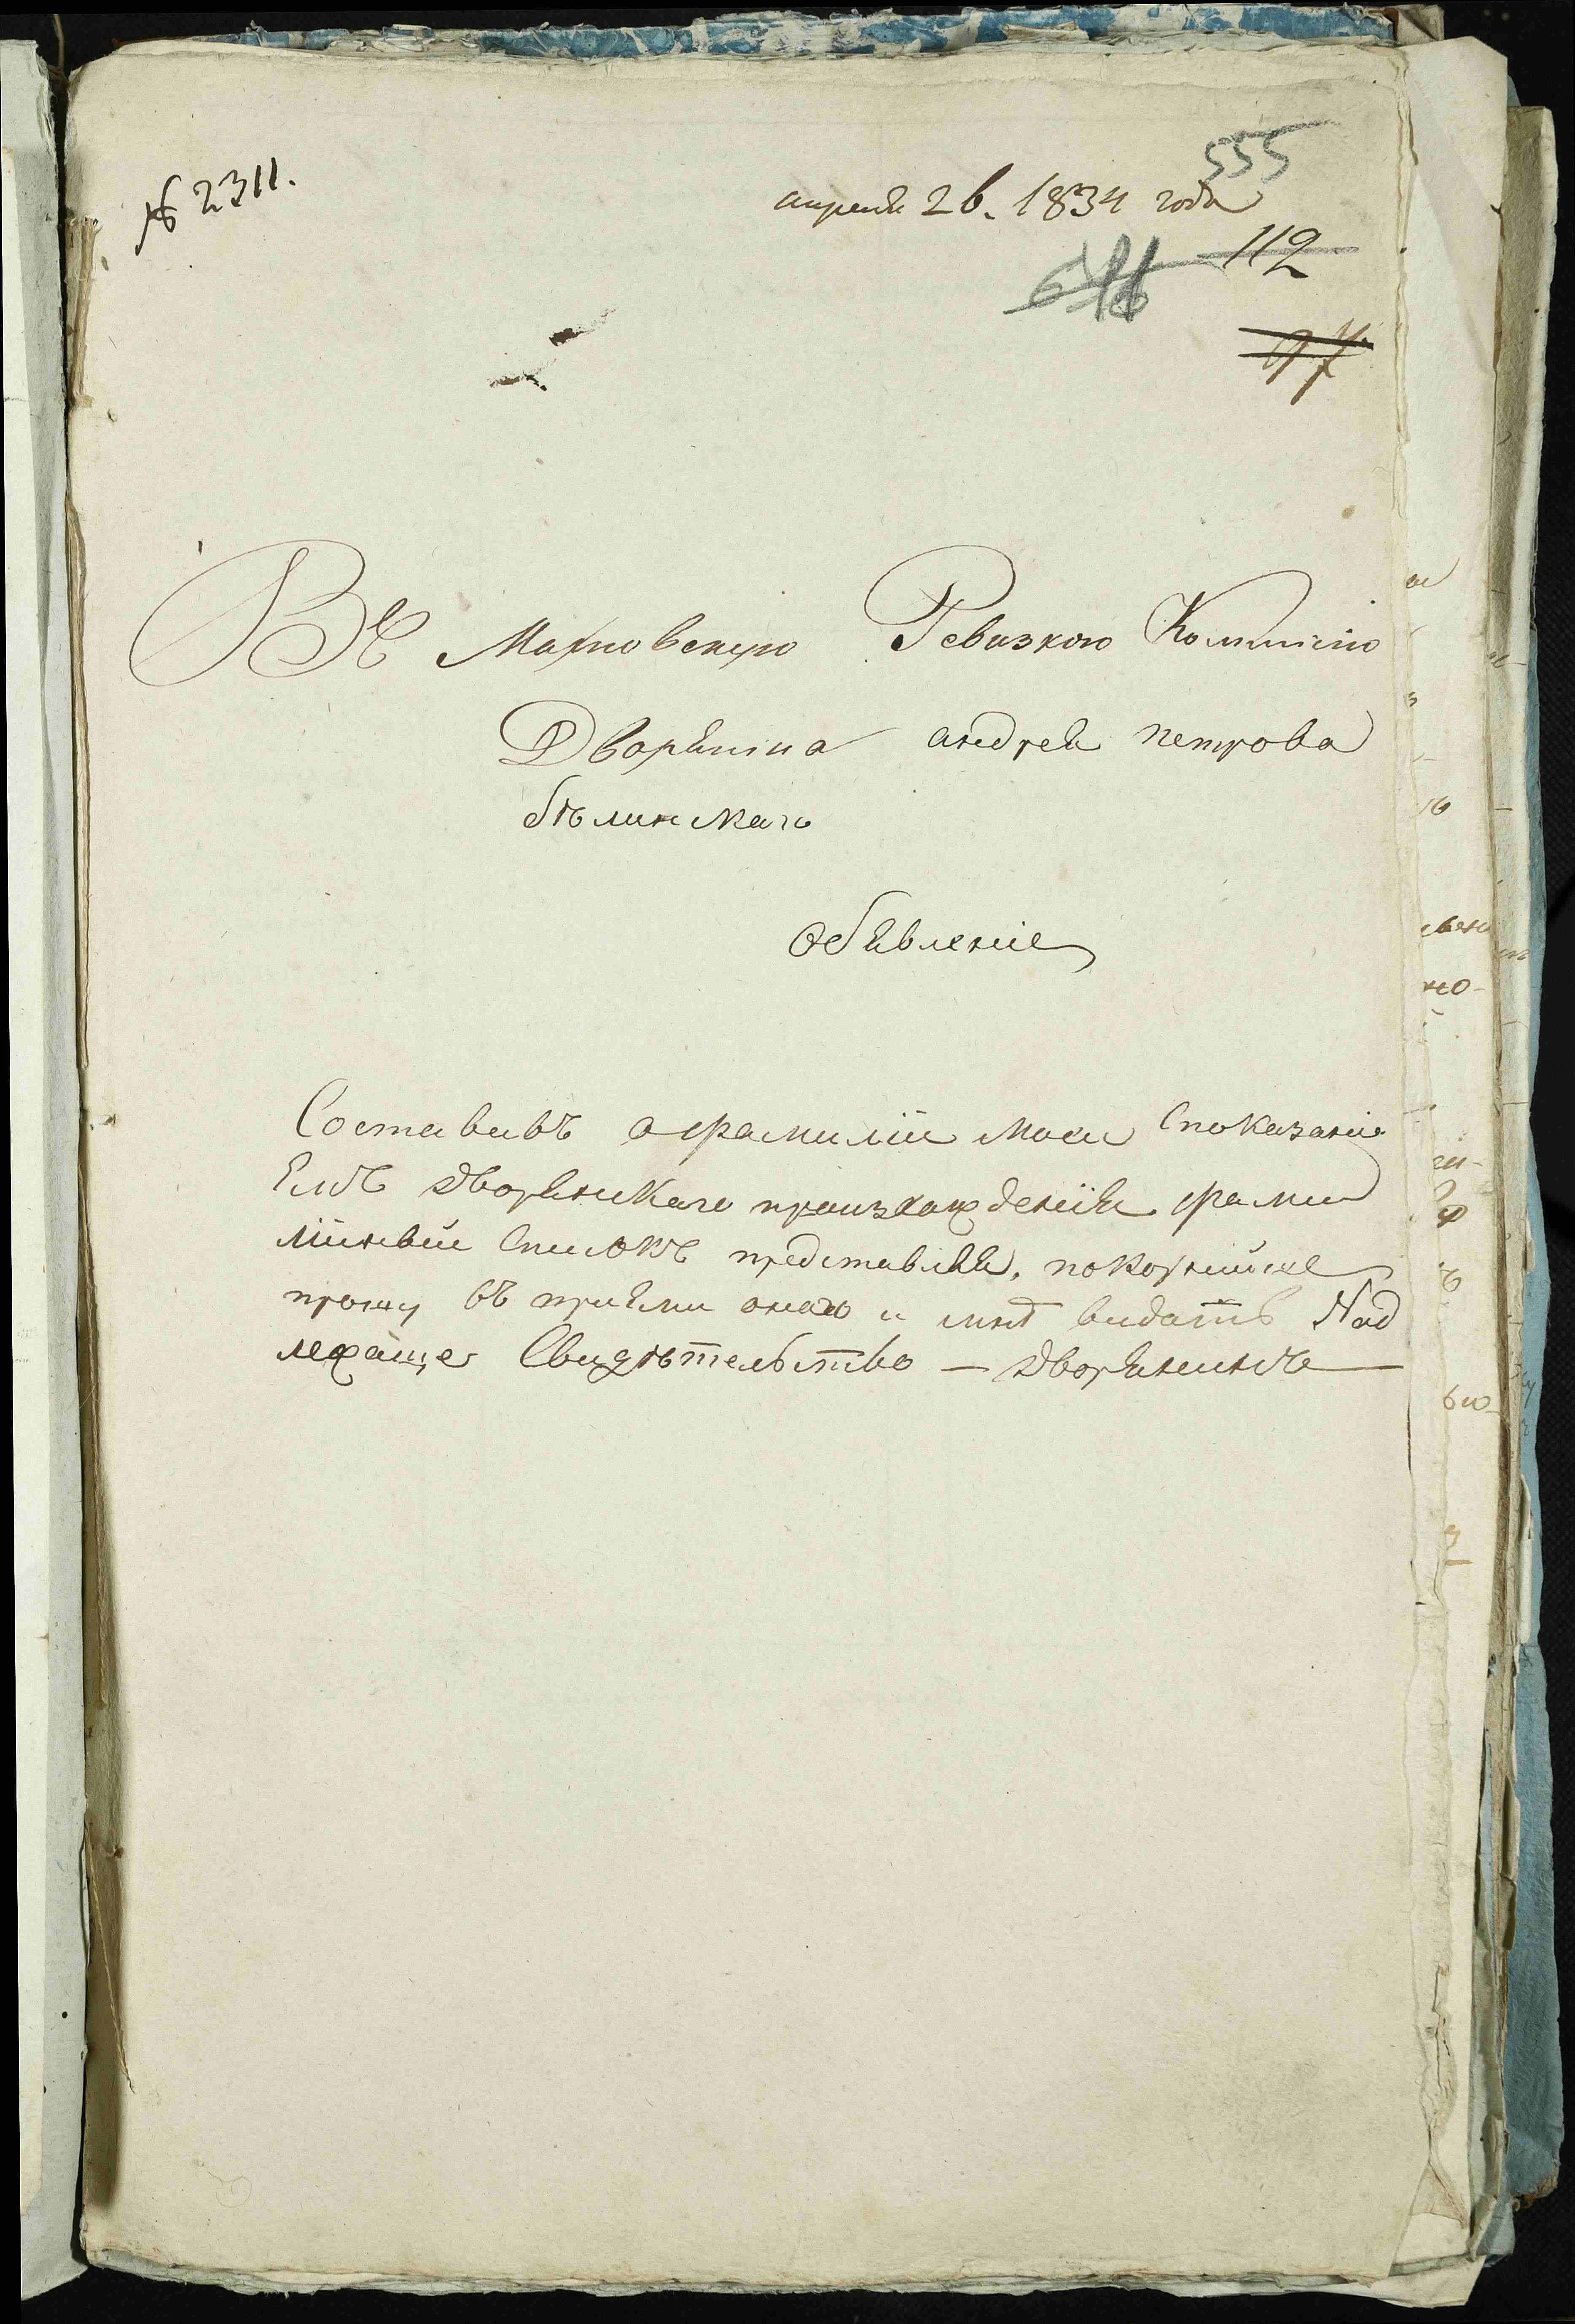 № 2311.
555
апреля 26. 1834 года
112
Въ Махновскую Ревизкою Комиссію
Дворянина андрея петрова
бѣлинскаго
Обявленіе
Составивъ о фамиліи моеи споказаніе
Емъ дворянскаго произхождепія фами
лійный Списокъ представляя, покорнейше
прошу въ пріями онаго и мнѣ видать Над
лежаще Свидѣтельство — дворянинъ